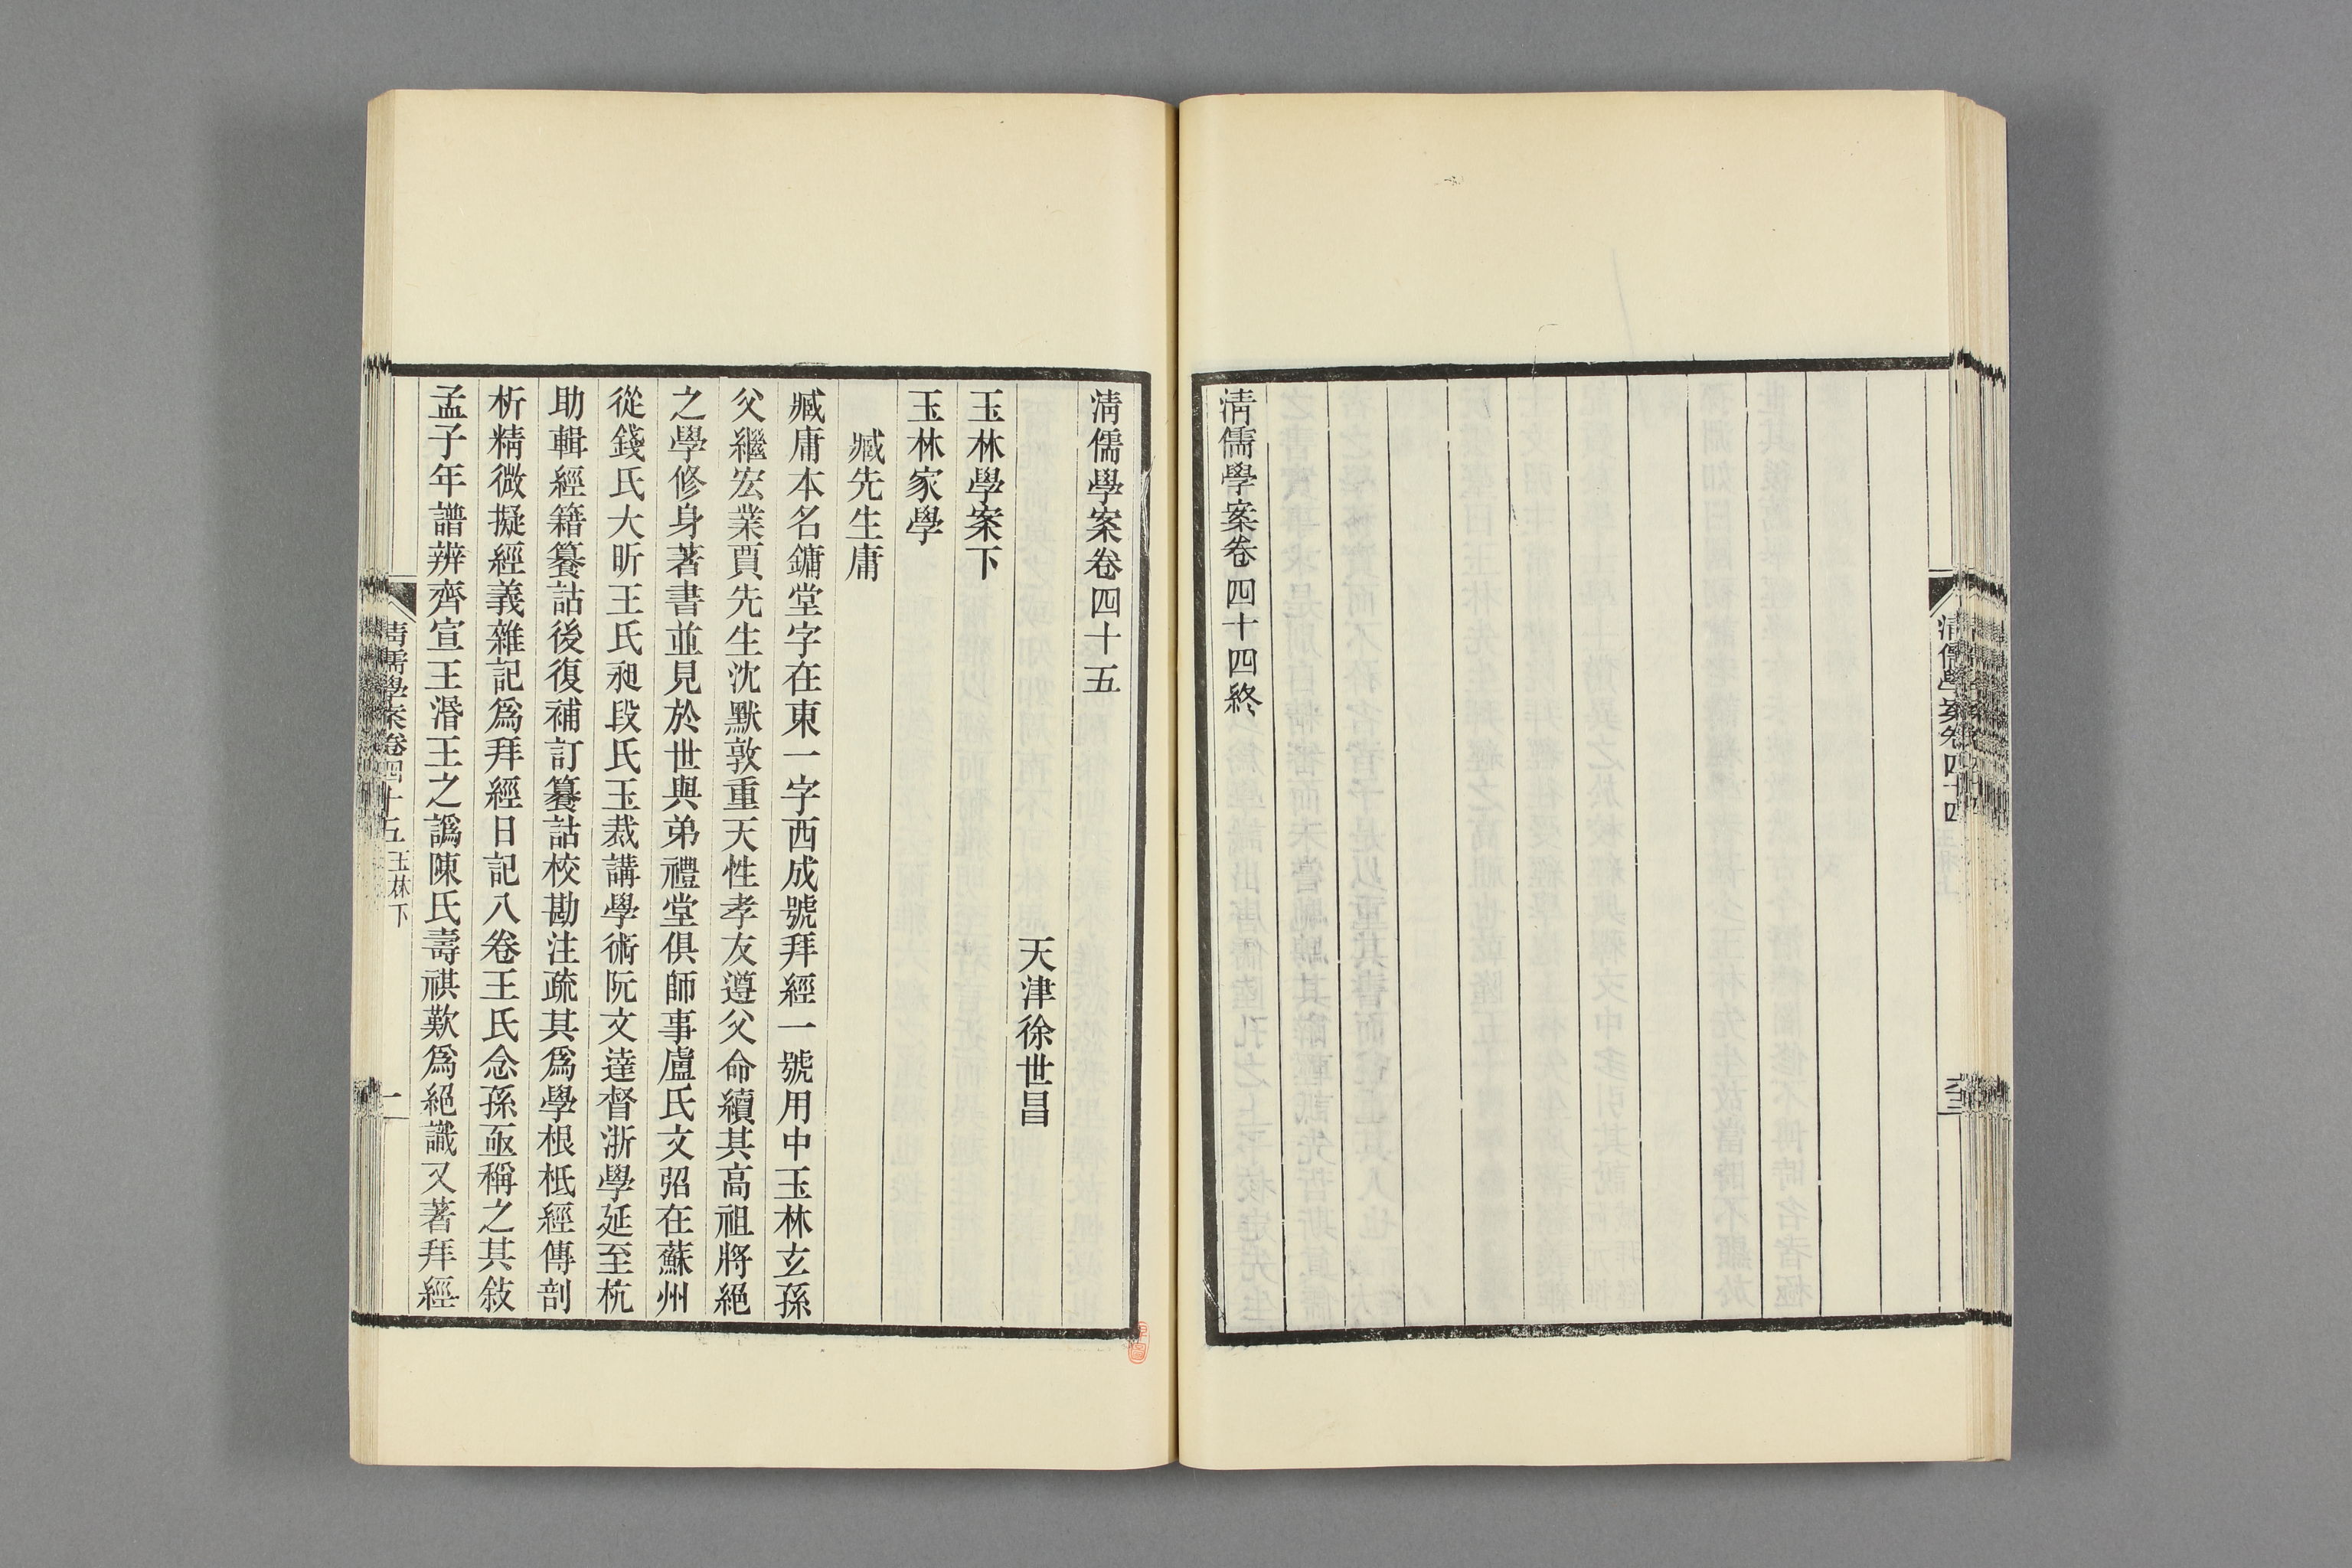 清儒學案卷四十四
清儒學案卷四十四終
清儒學案卷四十五
天津徐世昌
玉林學案下
玉林家學
臧先生庸
臧庸本名鏞堂字在東一字西成號拜經一號用中玉林玄孫
父繼宏業賈先生沈默敦重天性孝友遵父命續其高祖將絕
之學修身著書並見於世與弟禮堂俱師事盧氏文弨在蘇州
從錢氏大昕王氏昶段氏玉裁講學術阮文達督浙學延至杭
助輯經籍籑詁後復補訂籑詁校勘注疏其爲學根柢經傳剖
析精微擬經義雜記爲拜經日記八卷王氏念孫亟稱之其敍
孟子年譜辨齊宣王湣王之譌陳氏壽祺歎爲絕識又著拜經
清儒學案卷四十五 玉林下
一